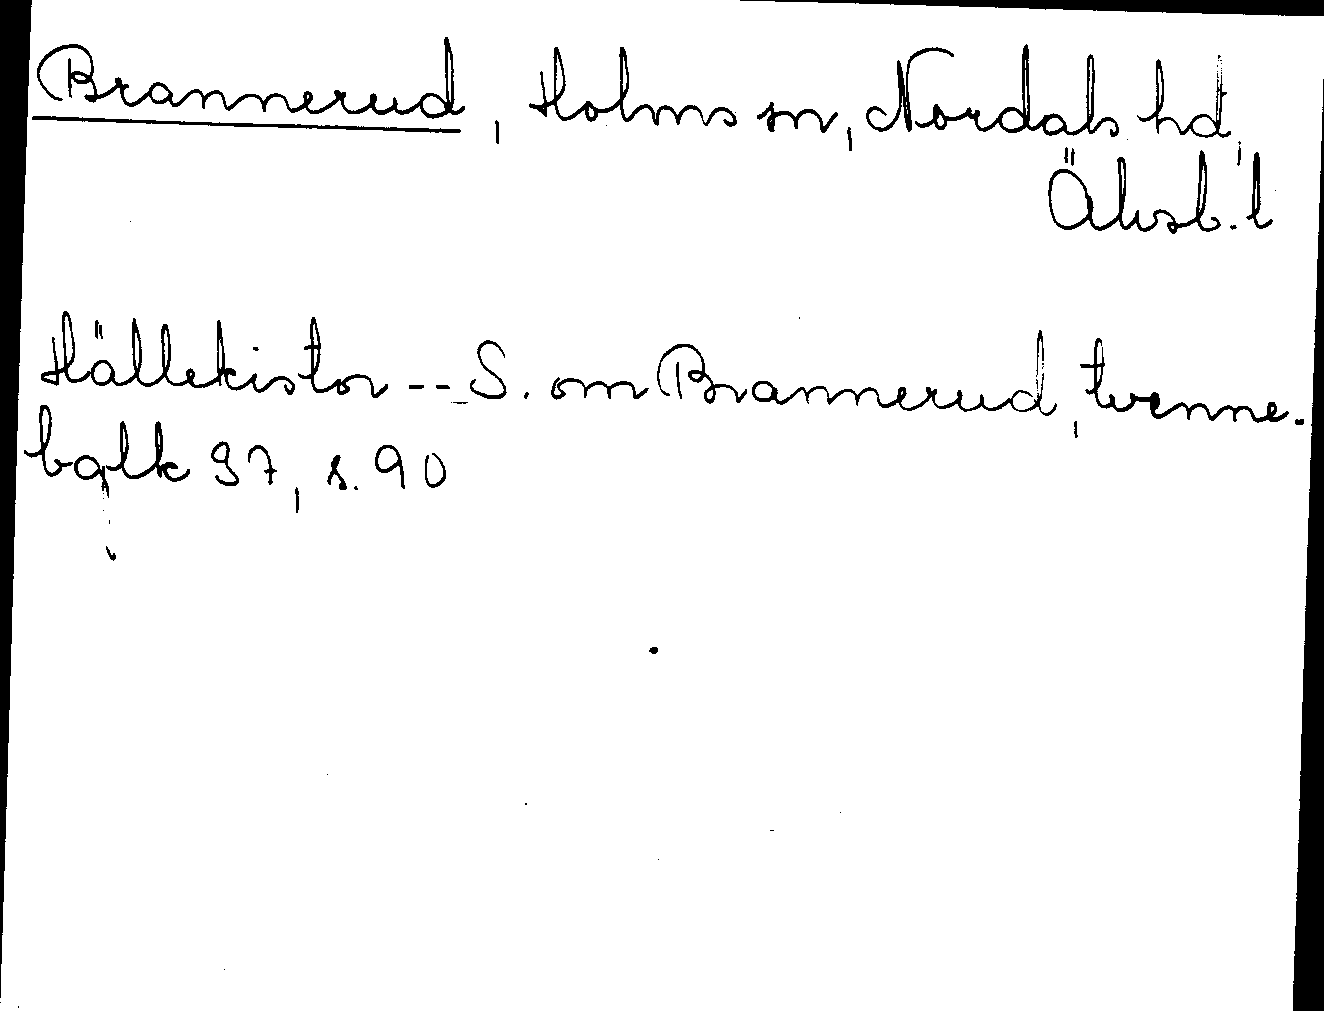 Brannerud, Holms sn, Nordals hd,
Älvsb. l
Hällekistor --- S. om Brannerud, tvenne.
bglk 97, s. 90